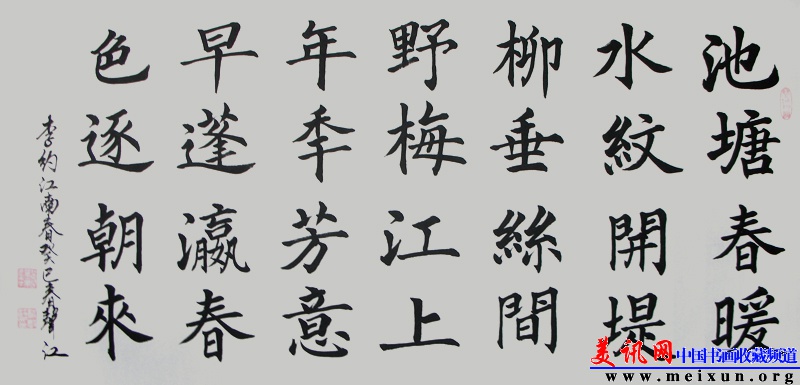 池塘春暖
水紋開堤
柳垂絲間
野梅江上
年季芳意
早蓬瀛春
色逐朝來
李約江南春癸巳春江
美讯网中国书画收藏频道
www.meixun.org